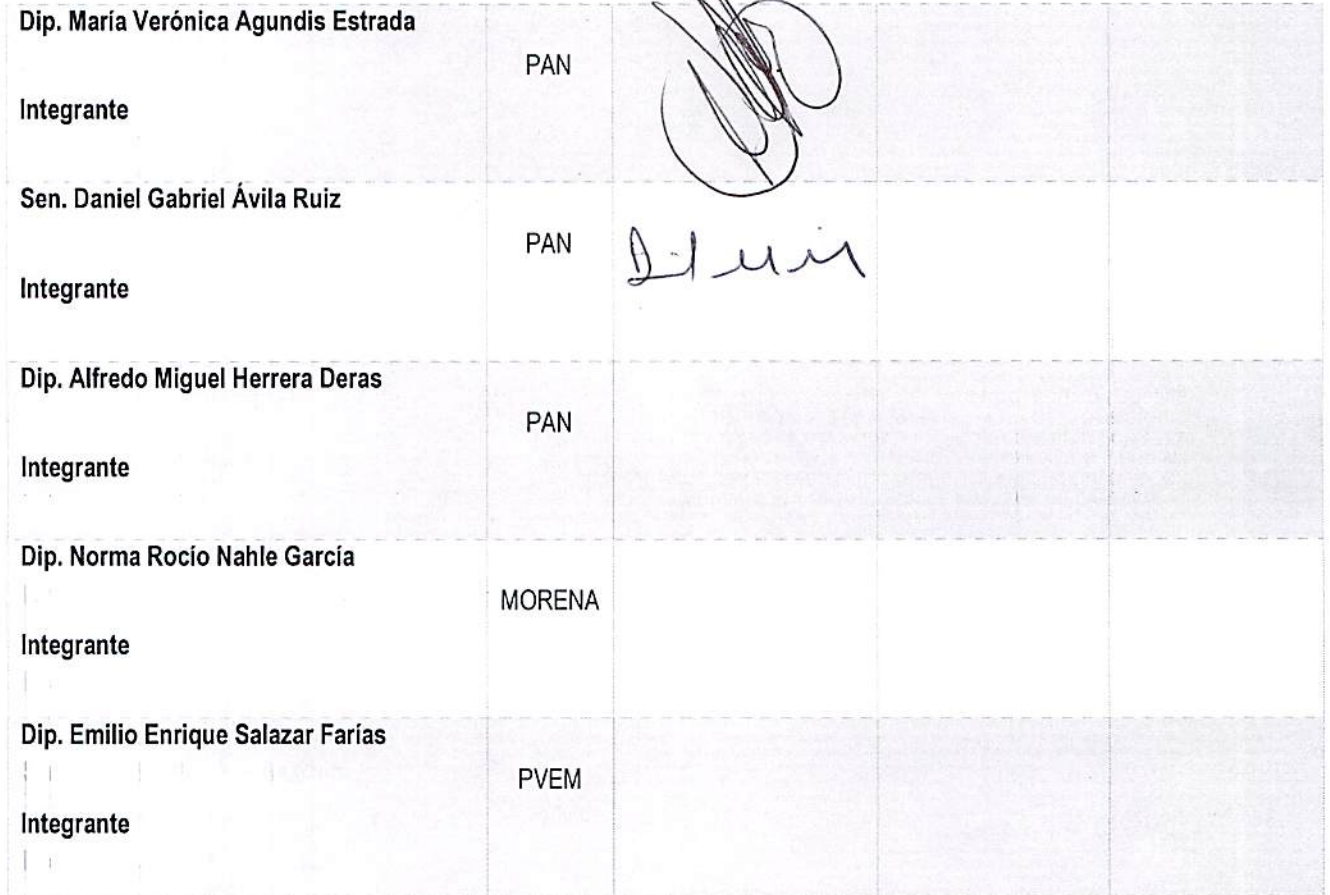 Dip. María Verónica Agundis Estrada
PAN
Integrante
Sen. Daniel Gabriel Ávila Ruiz
PAN
Integrante
Dip. Alfredo Miguel Herrera Deras
PAN
Integrante
Dip. Norma Rocío Nahle García
MORENA
Integrante
Dip. Emilio Enrique Salazar Farías
PVEM
Integrante